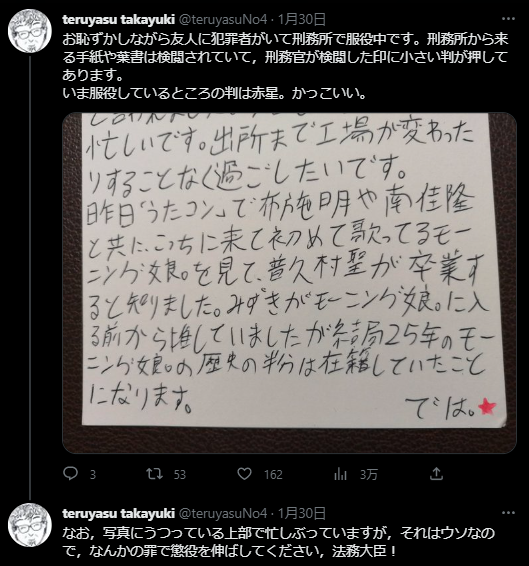 teruyasu takayuki @teruyasuNo4・1月30日
お恥ずかしながら友人に犯罪者がいて刑務所で服役中です。刑務所から来
る手紙や葉書は検閲されていて，刑務官が検閲した印に小さい判が押して
あります。
いま服役しているところの判は赤星。かっこいい。
忙しいです。出所まで工場が変わった
りすることなく過ごしたいです。
昨日「うたコン」で布施明や南佳隆
と共に、こっちに来て初めて歌ってるモー
ニング娘。を見て、普久村聖が卒業す
ると知りました。みずきがモーニング娘。に入
る前から推していましたが結局25年のモー
ニング娘。の歴史の半分は在籍していたこと
になります。
では。★
3 53 162 3万
teruyasu takayuki @teruyasuNo4・1月30日
なお，写真にうつっている上部で忙しぶっていますが，それはウソなの
で，なんかの罪で懲役を伸ばしてください，法務大臣！